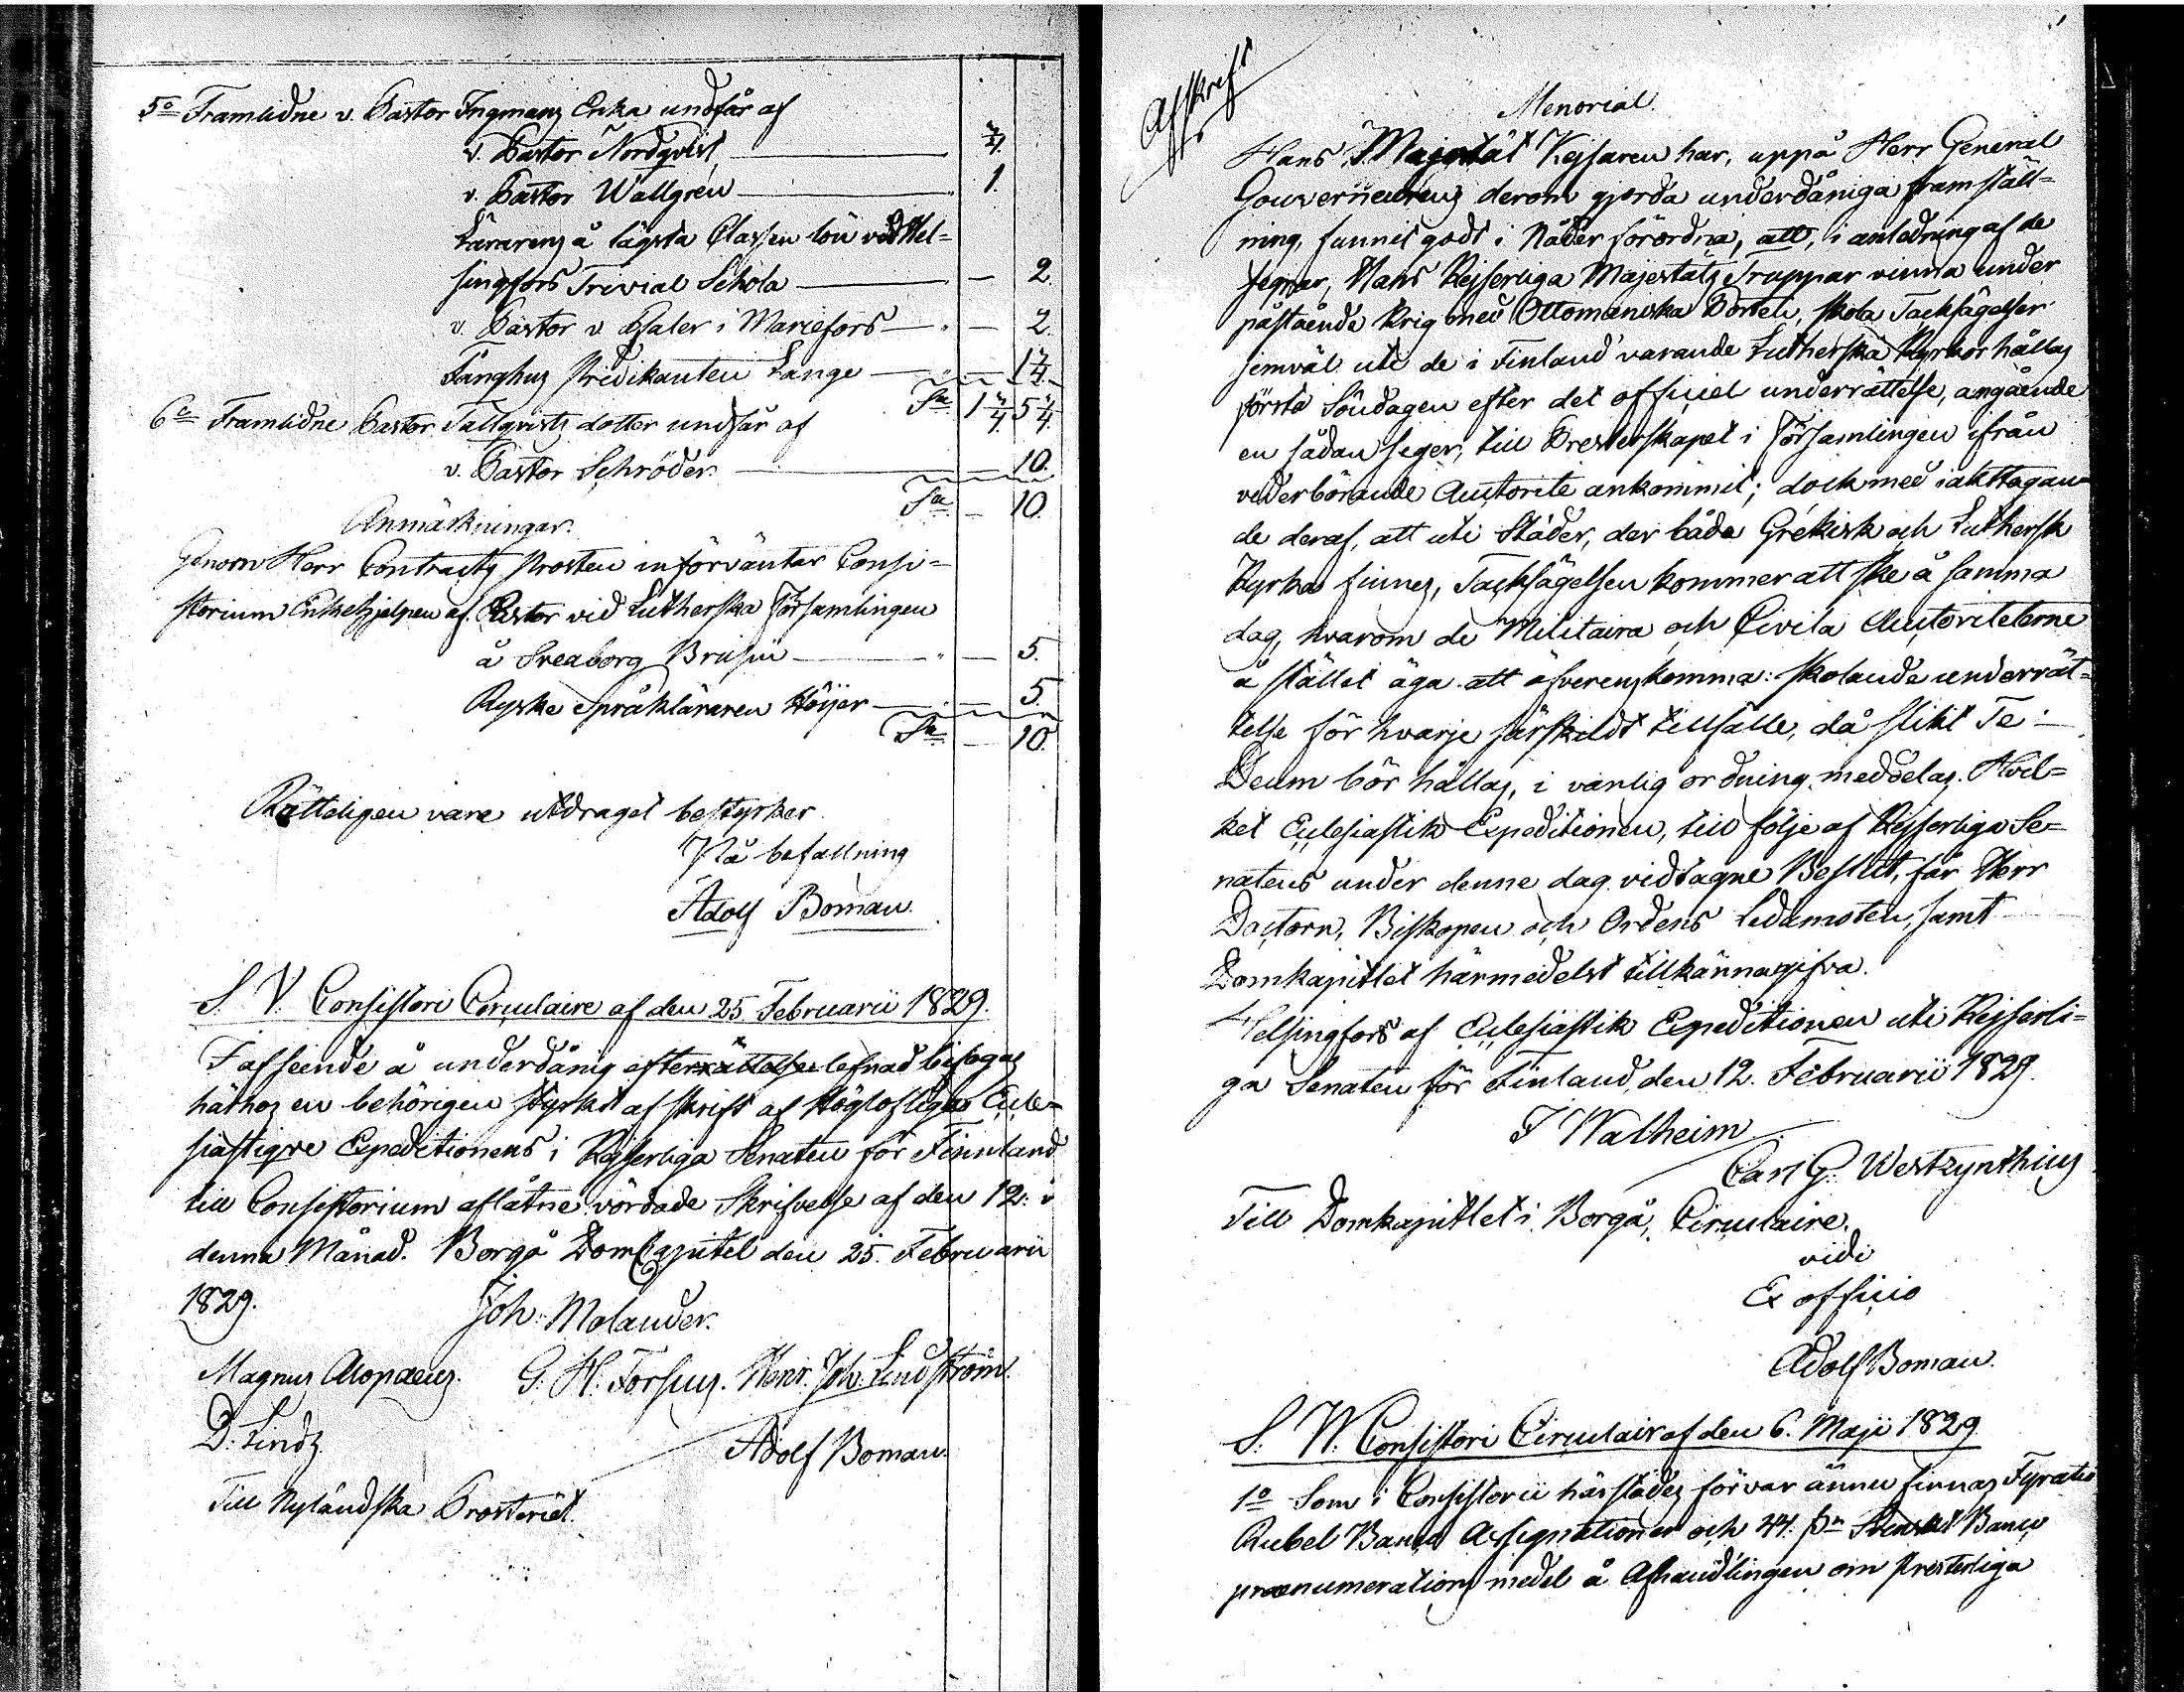 5o Framlidne v. Pastor Ingmans Enka undfår af
v. Pastor Nordqvist
v. Pastor Wallgren — 1.
Lärarens å lägsta Classen lön vid Hel=
singfors Trivial Schola — 2.
v. Pastor v Essler i Mariefors — 2.
Fånghus Predikanten Lange — 1 1/4.
Sa 1 1/4. 5 1/4.
6o Framlidne Pastor Tallqvists dotter undfår af
v. Pastor Schröder. — 10.
Sa — 10.
Anmärkningar.
Genom Herr Contracts Prosten införväntar Consi=
storium Enkehjelpen af Pastor vid Lutherska Församlingen
å Sveaborg Brusiin — 5.
Ryske Språkläraren Höijer — 5.
Sa — 10.
Rätteligen vara utdraget bestyrker
På befallning
Adolf Boman.
S. V. Consistorii Circulaire af den 25 Februarii 1829.
I afseende å underdånig efterrättelse lefnad bifogas
härhos en behörigen styrkt afskrift af Höglofliga Eccle=
siastique Expeditionens i Kejserliga Senaten för Finnland
till Consistorium aflåtne vördade Skrifvelse af den 12. i
denna Månad. Borgå DomCapitel den 25. Februarii
1829. Joh: Molander.
Magnus Alopaeus. G. H. Forsius. Henr. Joh. Lindström.
D. Lindh.
Adolf Boman.
Till Nyländska Prosteriet.
Afskrift
Memorial.
Hans Majestät Kejsaren har, uppå Herr General
Gouverneurens derom gjorda underdåniga framställ=
ning, funnit godt i Nåder förordna, att, i anledning af de
segrar, Hans Kejserliga Majestäts Truppar vinna under
påstående Krig med Ottomaniska Porten, skola Tacksägelser
jemväl uti de i Finland varande Lutherska Kyrkor hållas
första Söndagen efter det officiel underrättelse, angående
en sådan seger, till Presterskapet i Församlingen ifrån
vederbörande Autorité ankommit; dock med iakttagan=
de deraf, att uti Städer, der både Grekisk och Luthersk
Kyrka finnes, Tacksägelsen kommer att ske å samma
dag, hvarom de Militaira och Civila Autoriteterne
å stället äga att öfverenskomma: skolande underrät=
telse för hvarje särskildt tillfälle, då slikt Te
Deum bör hållas, i vanlig ordning meddelas. Hvil=
ket Ecclesiastik Expeditionen, till följe af Kejserliga Se=
natens under denne dag vidtagne Beslut, får Herr
Doctorn, Biskopen och Ordens Ledamoten, samt
Domkapitlet härmedelst tillkännagifva.
Helsingfors af Ecclesiastik Expeditionen uti Kejserli=
ga Senaten för Finland, den 12. Februarii 1829.
F Walheim
Carl G. Westzynthius
Till Domkapitlet i Borgå, Circulaire.
vidi
Ex officio
Adolf Boman.
S. W. Consistorii Circulair af den 6. Maji 1829.
1o Som i Consistorii härstädes förvar ännu finnas Fyratio
Rubel Banco Assignationer och 44. sn Svenskt Banco
praenumerations medel å Afhandlingen om Presterliga